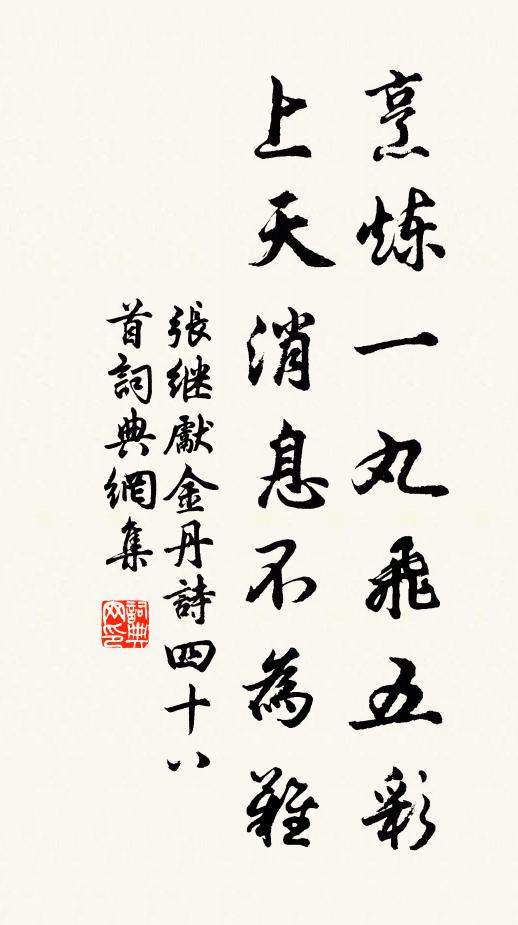 烹炼一丸飛五彩
上天消息不為難
張继獻金丹詩四十八
首詞典網集
詞典网印